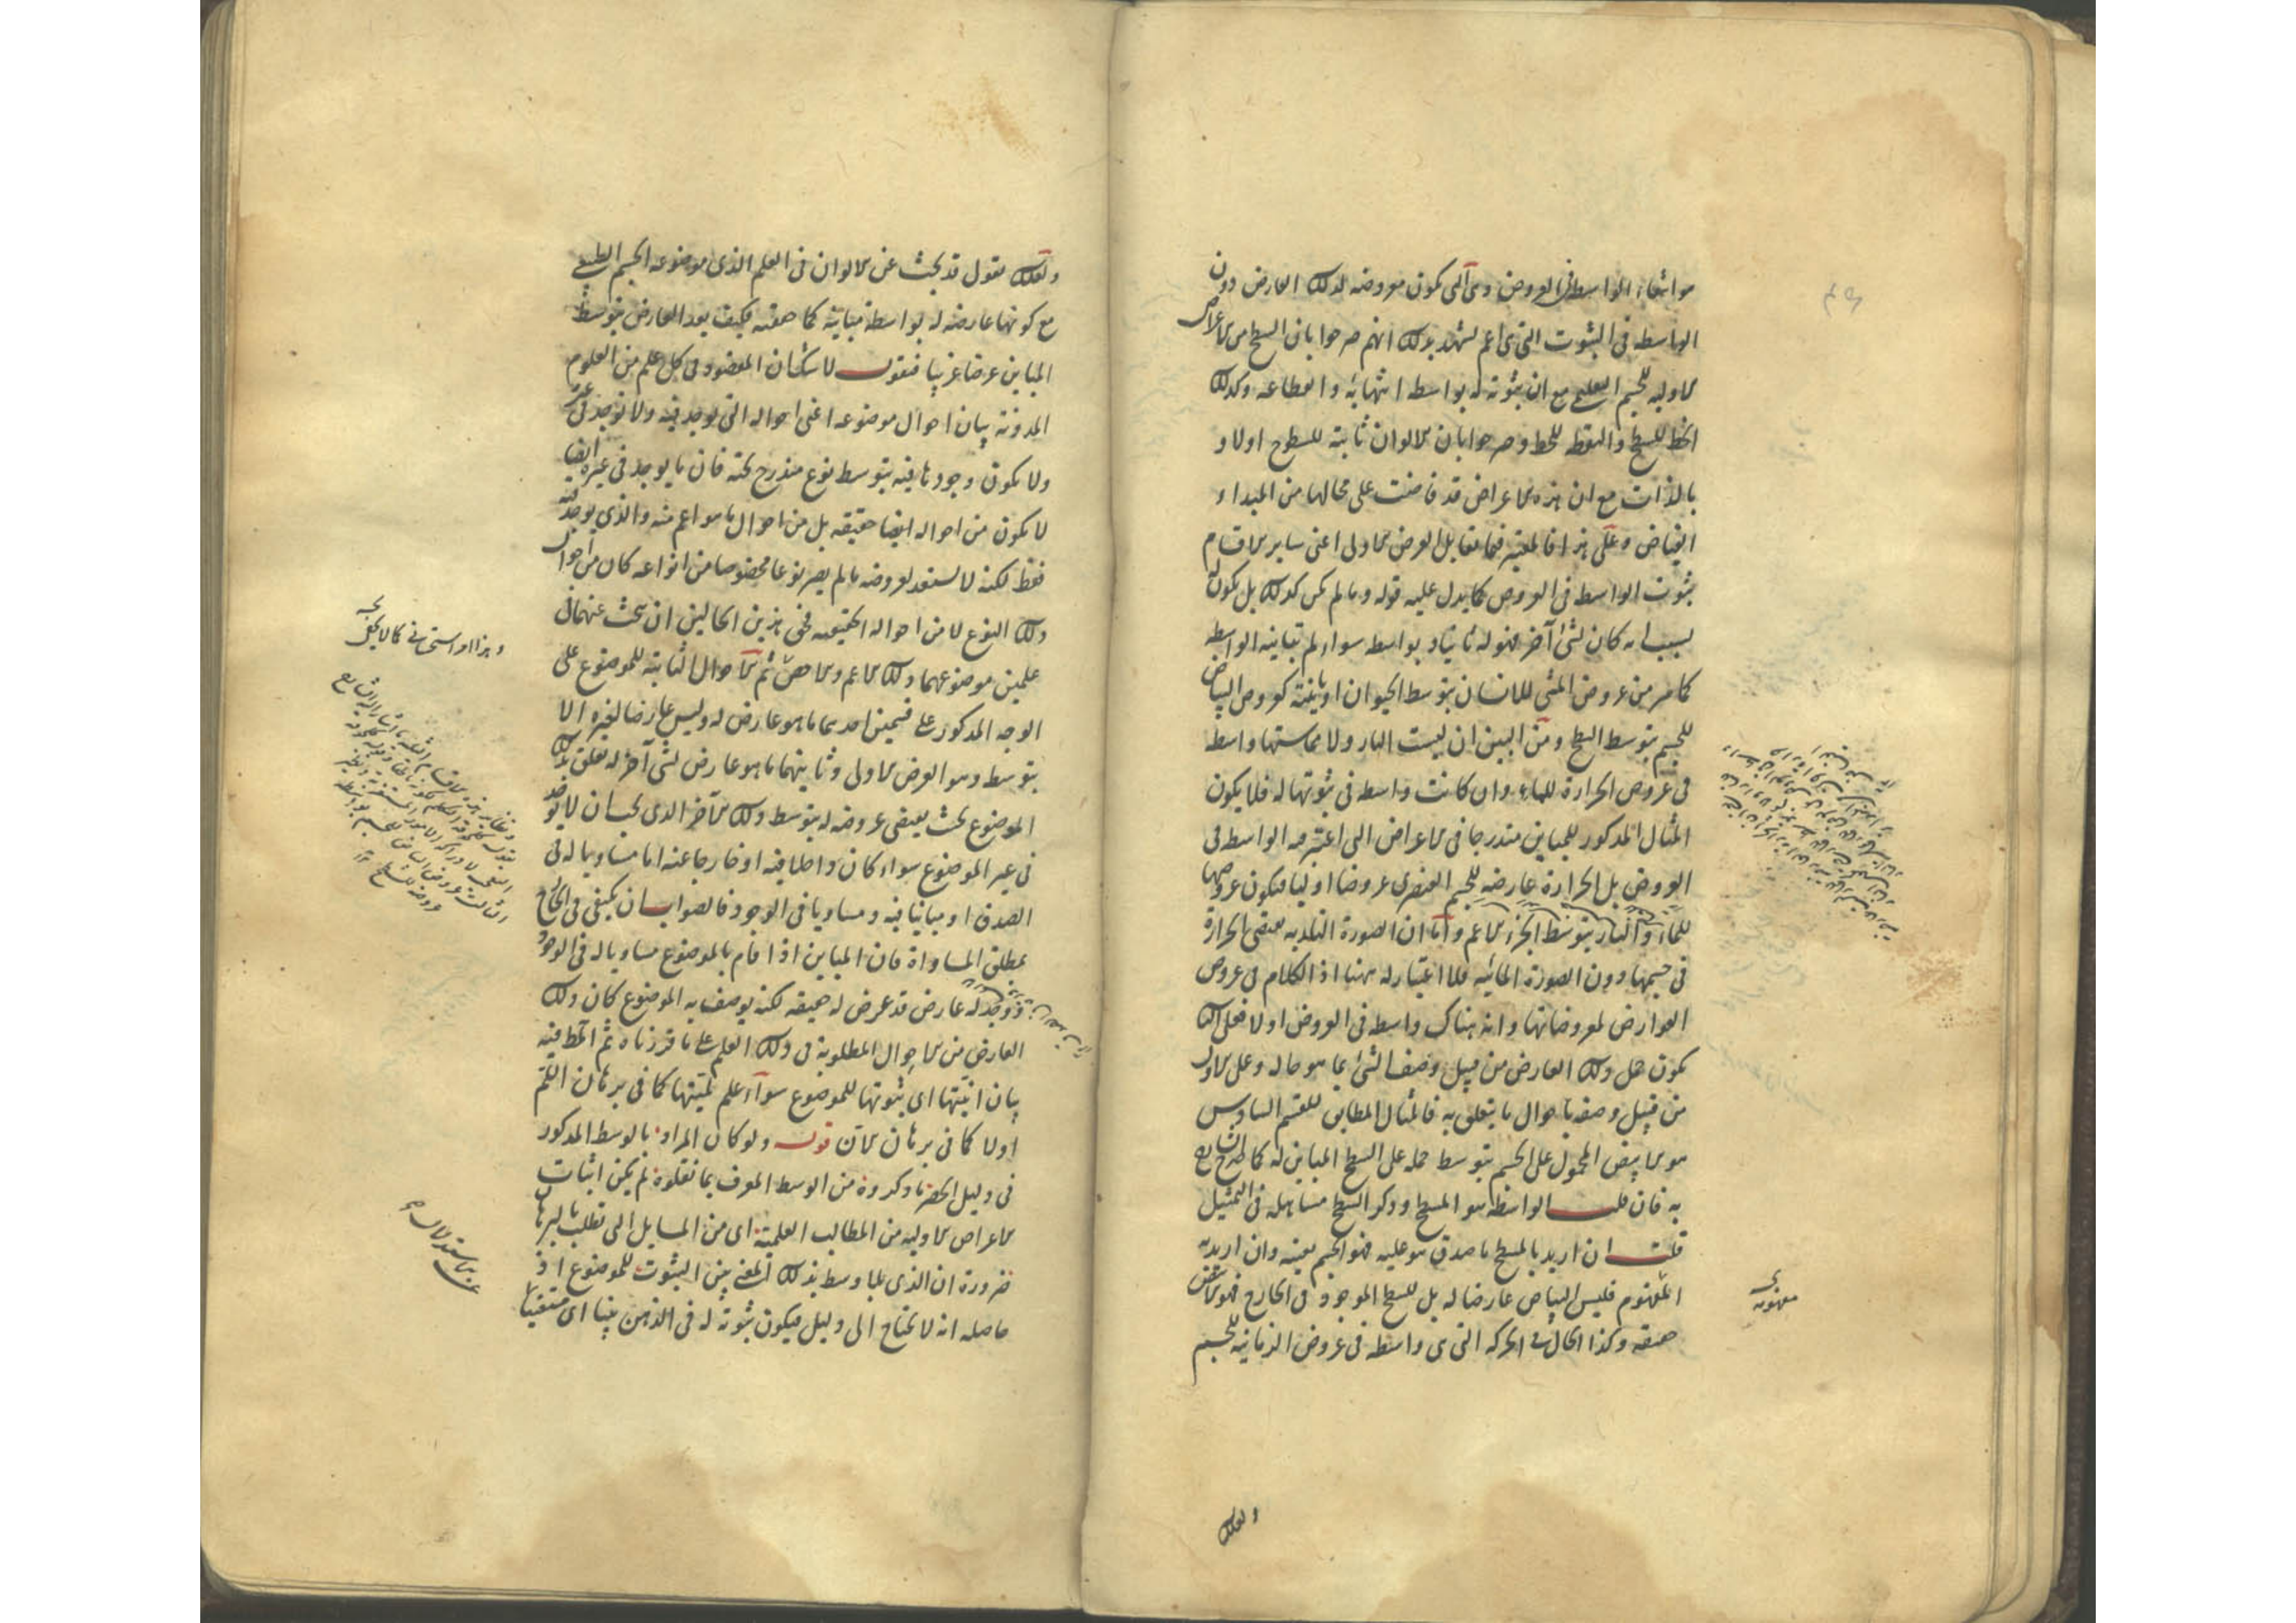 هو انتفاء الواسطة فى العروض وهى التى تكون معروضة لذلك العارض دون
الواسطة فى الثبوت التى هى اعم يشهد بذلك انهم صرحوا بان السطح من الاعراض
الاولية للجسم التعليمى مع ان ثبوته له بواسطة انتهائه وانقطاعه وكذلك
الخط للسطح والنقطة للخط وصرحوا بان الالوان ثابتة للسطوح اولا و
بالذات مع ان هذه الاعراض قد فاضت على محالها من المبداء
الفياض وعلى هذا فالمعتبر فيما يقابل العرض الاولى اعنى ساير الاقسام
ثبوت الواسطة فى العروض كما يدل عليه قوله وما لم يكن كذلك بل يكون
لسبب انه كان لشئ آخر فهو له ثانيا وبواسطة سواء لم تباينه الواسطة
كما مر من عروض المشى للانسان بتوسط الحيوان او باينته كعروض البياض
للجسم بتوسط السطح ومن البين ان ليست النار ولا مماستها واسطة
فى عروض الحرارة للماء وان كانت واسطة فى ثبوتها له فلا يكون
المثال المذكور للمباين مندرجا فى الاعراض التى اعتبر فيه الواسطة فى
العروض بل الحرارة عارضة للجسم العنصرى عروضا اوليا فيكون عروضها
للماء والنار بتوسط الجزء الاعم واما ان الصورة النارية تقتضى الحرارة
فى جسمها دون الصورة المائية فلا اعتبار له ههنا اذ الكلام فى عروض
العوارض لمعروضاتها وانه هناك واسطة فى العروض اولا فعلى الثانى
يكون حمل ذلك العارض من قبيل وصف الشئ بما هو حاله وعلى الاول
من قبيل وصفه باحوال ما يتعلق به فالمثال المطابق للقسم السادس
هو الابيض المحمول على الجسم بتوسط حمله على السطح المباين له كما صرح الشارح
به فان قلت الواسطة هو المسطح وذكر السطح مساهلة فى التمثيل
قلت ان اريد بالمسطح ما صدق هو عليه فهو الجسم بعينه وان اريد به
المفهوم فليس البياض عارضا له بل للسطح الموجود فى الخارج فهو الابيض
حقيقة وكذا الحال فى الحركة التى هى واسطة فى عروض الزمانية للجسم
ولعلك
ولعلك تقول قد يبحث عن الالوان فى العلم الذى موضوعه الجسم الطبيعى
مع كونها عارضة له بواسطة مباينة كما حققته فكيف يعد العارض بتوسط
المباين عرضا غريبا فنقول لا شك ان المقصود فى كل علم من العلوم
المدونة بيان احوال موضوعه اعنى احواله التى توجد فيه ولا توجد فى غيره
ولا يكون وجودها فيه بتوسط نوع مندرج تحته فان ما يوجد فى غيره ايضا
لا يكون من احواله ايضا حقيقة بل من احوال ما هو اعم منه والذى يوجد فيه
فقط لكنه لا يستعد لعروضه ما لم يصر نوعا مخصوصا من انواعه كان من احوال
ذلك النوع لا من احواله الحقيقية فحق هذين الحالين ان يبحث عنهما فى
علمين موضوعهما ذلك الاعم والاخص ثم الاحوال الثابتة للموضوع على
الوجه المذكور على قسمين احدهما ما هو عارض له وليس عارضا لغيره الا
بتوسطه وهو العرض الاولى وثانيهما ما هو عارض لشئ آخر له تعلق بذلك
الموضوع بحيث يقتضى عروضه له بتوسط ذلك الآخر الذى يجب ان لا يوجد
فى غير الموضوع سواء كان داخلا فيه او خارجا عنه اما مساويا له فى
الصدق او مباينا فيه ومساويا فى الوجود فالصواب ان يكتفى فى الخارج
بمطلق المساواة فان المباين اذا قام بالموضوع مساويا له فى الوجود
ووجد له عارض قد عرض له حقيقة لكنه يوصف به الموضوع كان ذلك
العارض من الاحوال المطلوبة فى ذلك العلم على ما قررناه ثم المطلوب فيه
بيان انيتها اى ثبوتها للموضوع سواء علم لميتها كما فى برهان اللم
اولا كما فى برهان الان قوله ولو كان المراد بالوسط المذكور
فى دليل الحصر ما ذكروه من الوسط المعرف بما نقلوه لم يكن اثبات
الاعراض الاولية من المطالب العلمية اى من المسايل التى تطلب بالبرهان
ضرورة ان الذى بلا وسط بذلك المعنى بين الثبوت للموضوع اذ
حاصله انه لا يحتاج الى دليل فيكون ثبوته له فى الذهن بينا اى مستغنيا